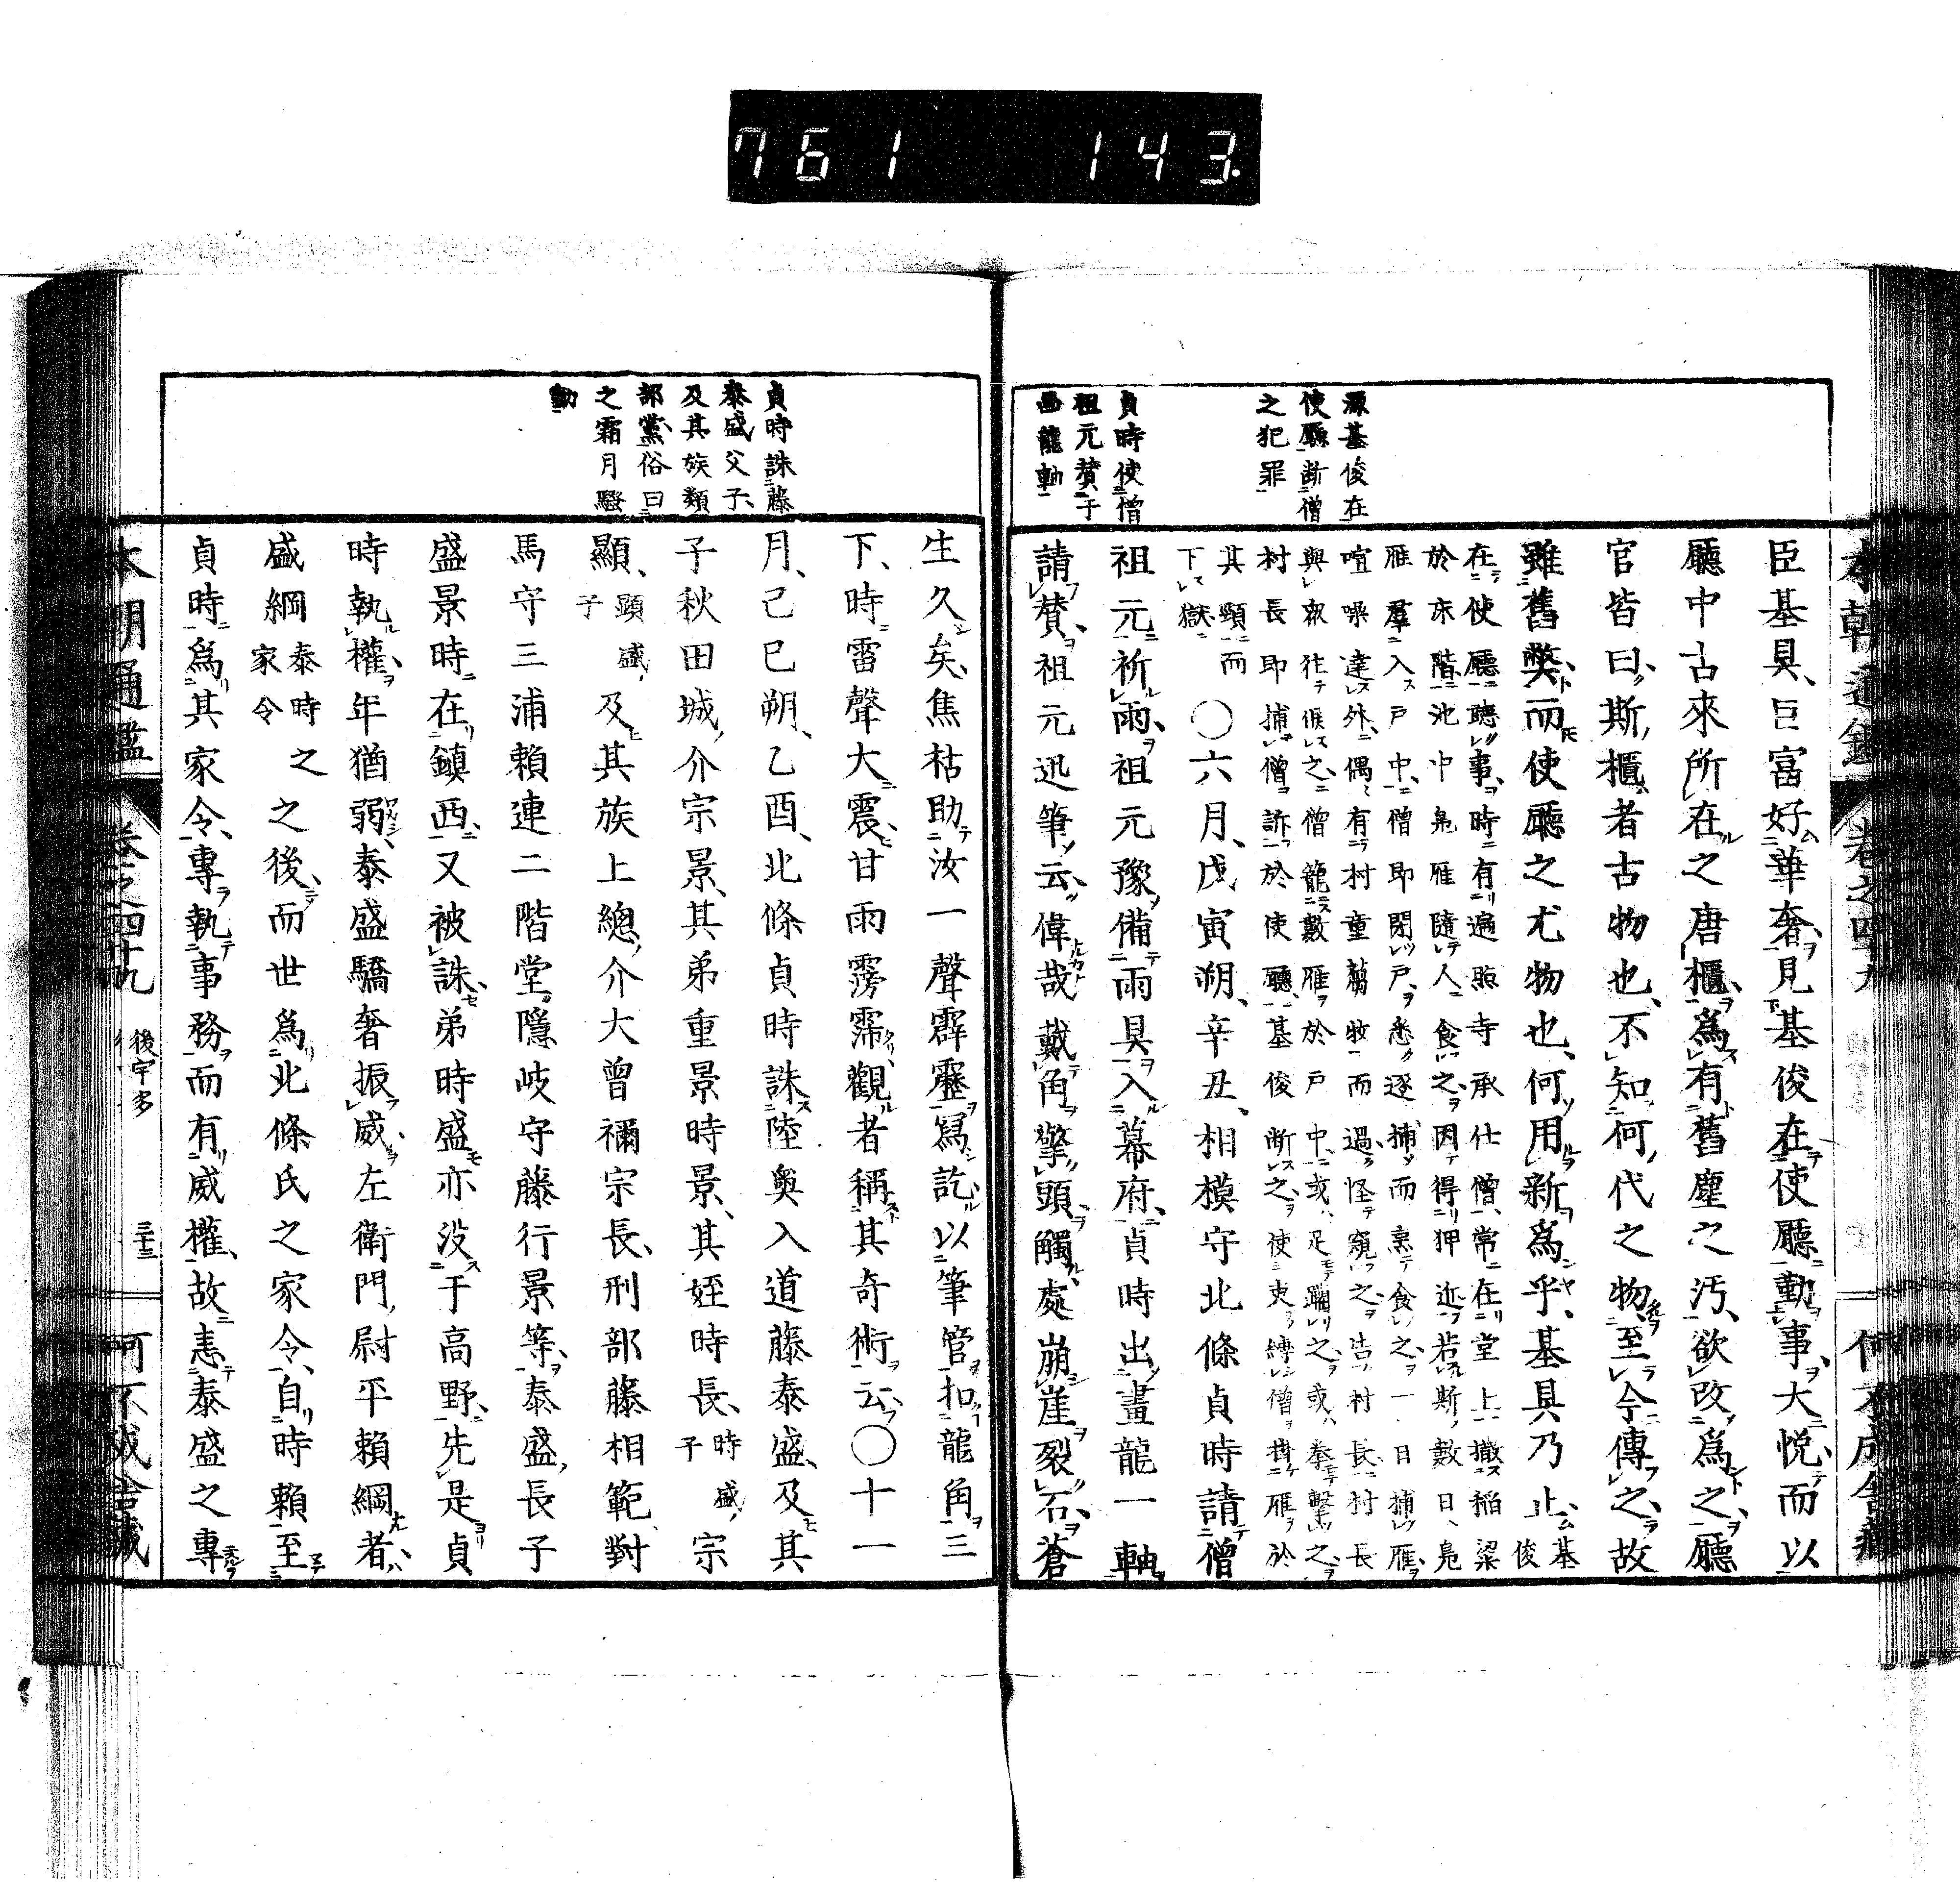 761 143.
源基俊在
使廳断僧
之犯罪
貞時使僧
祖元賛于
画龍軸
臣基具巨富好華奢見基俊在使廳勤事大悦而以
廳中古來所在之唐櫃爲有舊塵之汚欲改爲之廳
官皆曰斯櫃者古物也不知何代之物至今傳之故
雖舊獘而使廳之尤物也何用新爲乎基具乃止基俊
在使廳聽事時有遍照寺承仕僧常在堂上撒稲粱
於床階池中鳬雁隨人食之因得狎近若斯數日鳬
雁羣入戸中僧即閉戸悉逐捕而烹食之一日捕雁
喧噪達外偶有村童蒭牧而過怪窺之告村長村長
與衆往候之僧籠數雁於戸中或足蹋之或拳撃之
村長即捕僧訴於使廳基俊断之使吏縛僧掛雁於
其頸而
下獄
〇六月戊寅朔辛丑相模守北條貞時請僧
祖元祈雨祖元豫備雨具入幕府貞時出畫龍一軸
請賛祖元迅筆云偉哉戴角擎頭觸處崩崖裂石蒼
本朝通鑑 卷之四十九
貞時誅藤
泰盛父子
及其族類
部黨俗曰
之霜月騒
動
生久矣焦枯助汝一聲霹靂寫訖以筆管扣龍角三
下時雷聲大震甘雨霶霈觀者稱其奇術云〇十一
月己巳朔乙酉北條貞時誅陸奥入道藤泰盛及其
子秋田城介宗景其弟重景時景其姪時長時盛子宗
顯顯盛子及其族上總介大曾禰宗長刑部藤相範對
馬守三浦頼連二階堂隱岐守藤行景等泰盛長子
盛景時在鎮西又被誅弟時盛亦没于高野先是貞
時執權年猶弱泰盛驕奢振威左衛門尉平頼綱者
盛綱泰時之家令之後而世爲北條氏之家令自時頼至
貞時爲其家令專執事務而有威權故恚泰盛之專
本朝通鑑 卷之四十九 後宇多 三十三